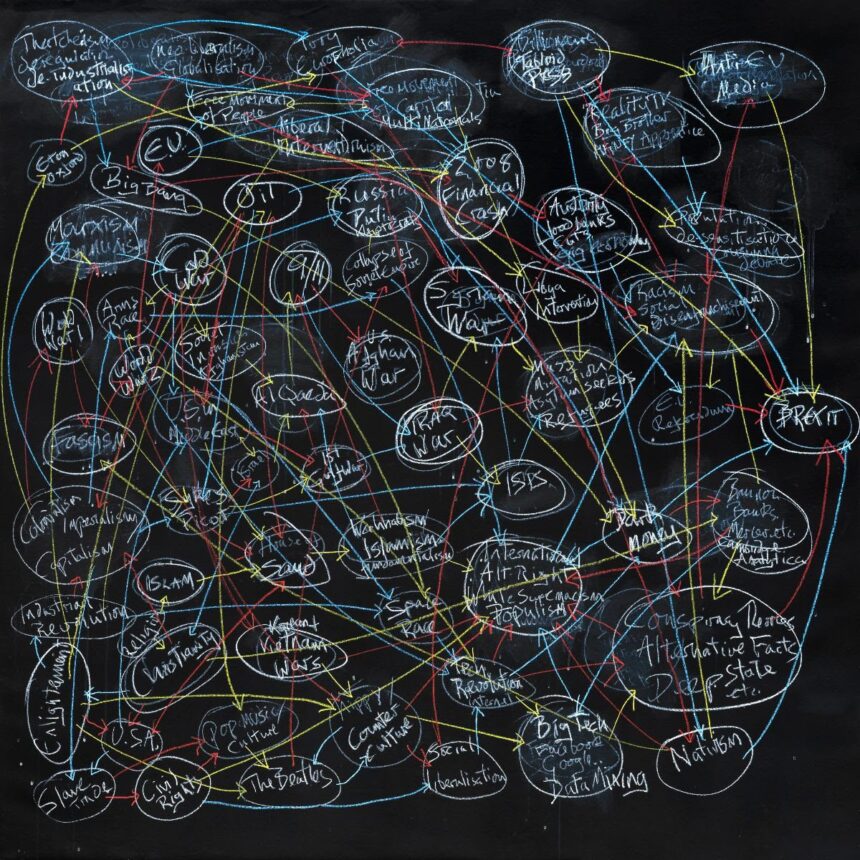 Thatcherism
de-industrialis
ation
Neo liberalism
Globalisation
Tory
Europhobia
Billionaire
Tabloid
Press
Anti-EU
Media
Free Movement
of People
Free Movement
Capital
Multi Nationals
Reality TV
Big Brother
Apprentice
Liberal
Interventionism
Eton
Oxford
E.U.
Big Bang
Oil
Russia
Putin
2008
Financial
Crash
Austerity
Foodbanks
Cuts
Marxism
Communism
Cold
War
9/11
Collapse of
Soviet Empire
Syrian
War
Libya
Intervention
Racism
Social
Disenfranchisement
World
War 1
Arms
Race
World
War 2
Soviet
U.S.
Afghan
War
Mass
Migration
Asylum Seekers
Refugees
EU
Referendum
BREXIT
Al Qaeda
Fascism
Middle East
IRAQ
War
Iran
1st
Gulf War
ISIS
Colonialism
Imperialism
Capitalism
Sykes
Picot
Dark
Money
Bannon
Banks
Mercer etc.
Cambridge
Analytica
House of
Saud
Islamism
Fundamentalism
International
Alt-Right
White Supremacism
Populism
ISLAM
Industrial
Revolution
Religion
Space
Race
Conspiracy Theories
Alternative Facts
Deep State
etc.
Christianity
Korean +
Vietnam
Wars
Enlightenment
Tech
Revolution
Internet
U.S.A.
Pop Music
Culture
Hippy
Counter
Culture
Big Tech
Facebook
Google
Data Mining
Nativism
Slave
Trade
Civil
Rights
The Beatles
Social
Liberalisation